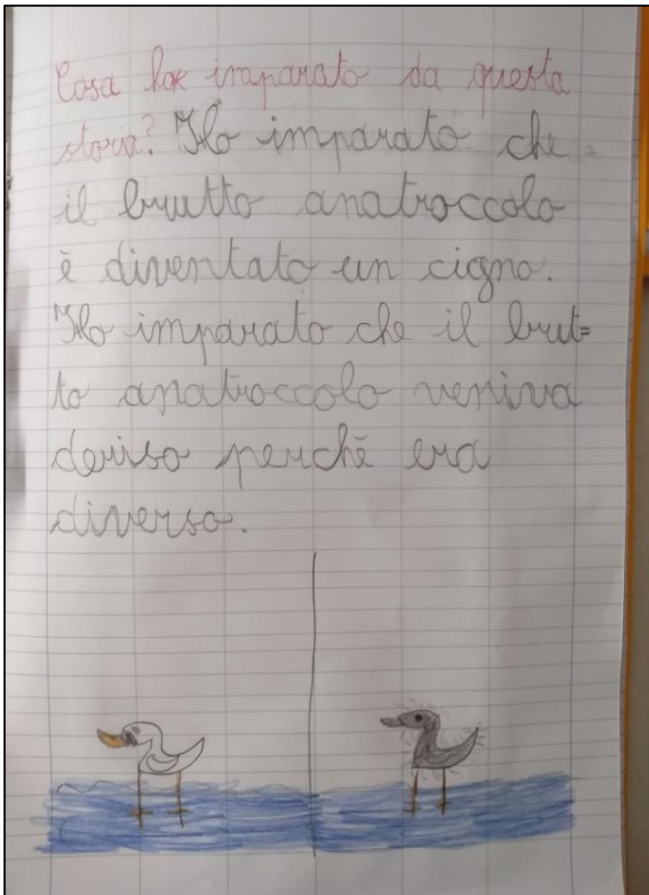 Cosa ho imparato da questa
storia? Ho imparato che
il brutto anatroccolo
è diventato un cigno.
Ho imparato che il brut=
to anatroccolo veniva
deriso perchè era
diverso.